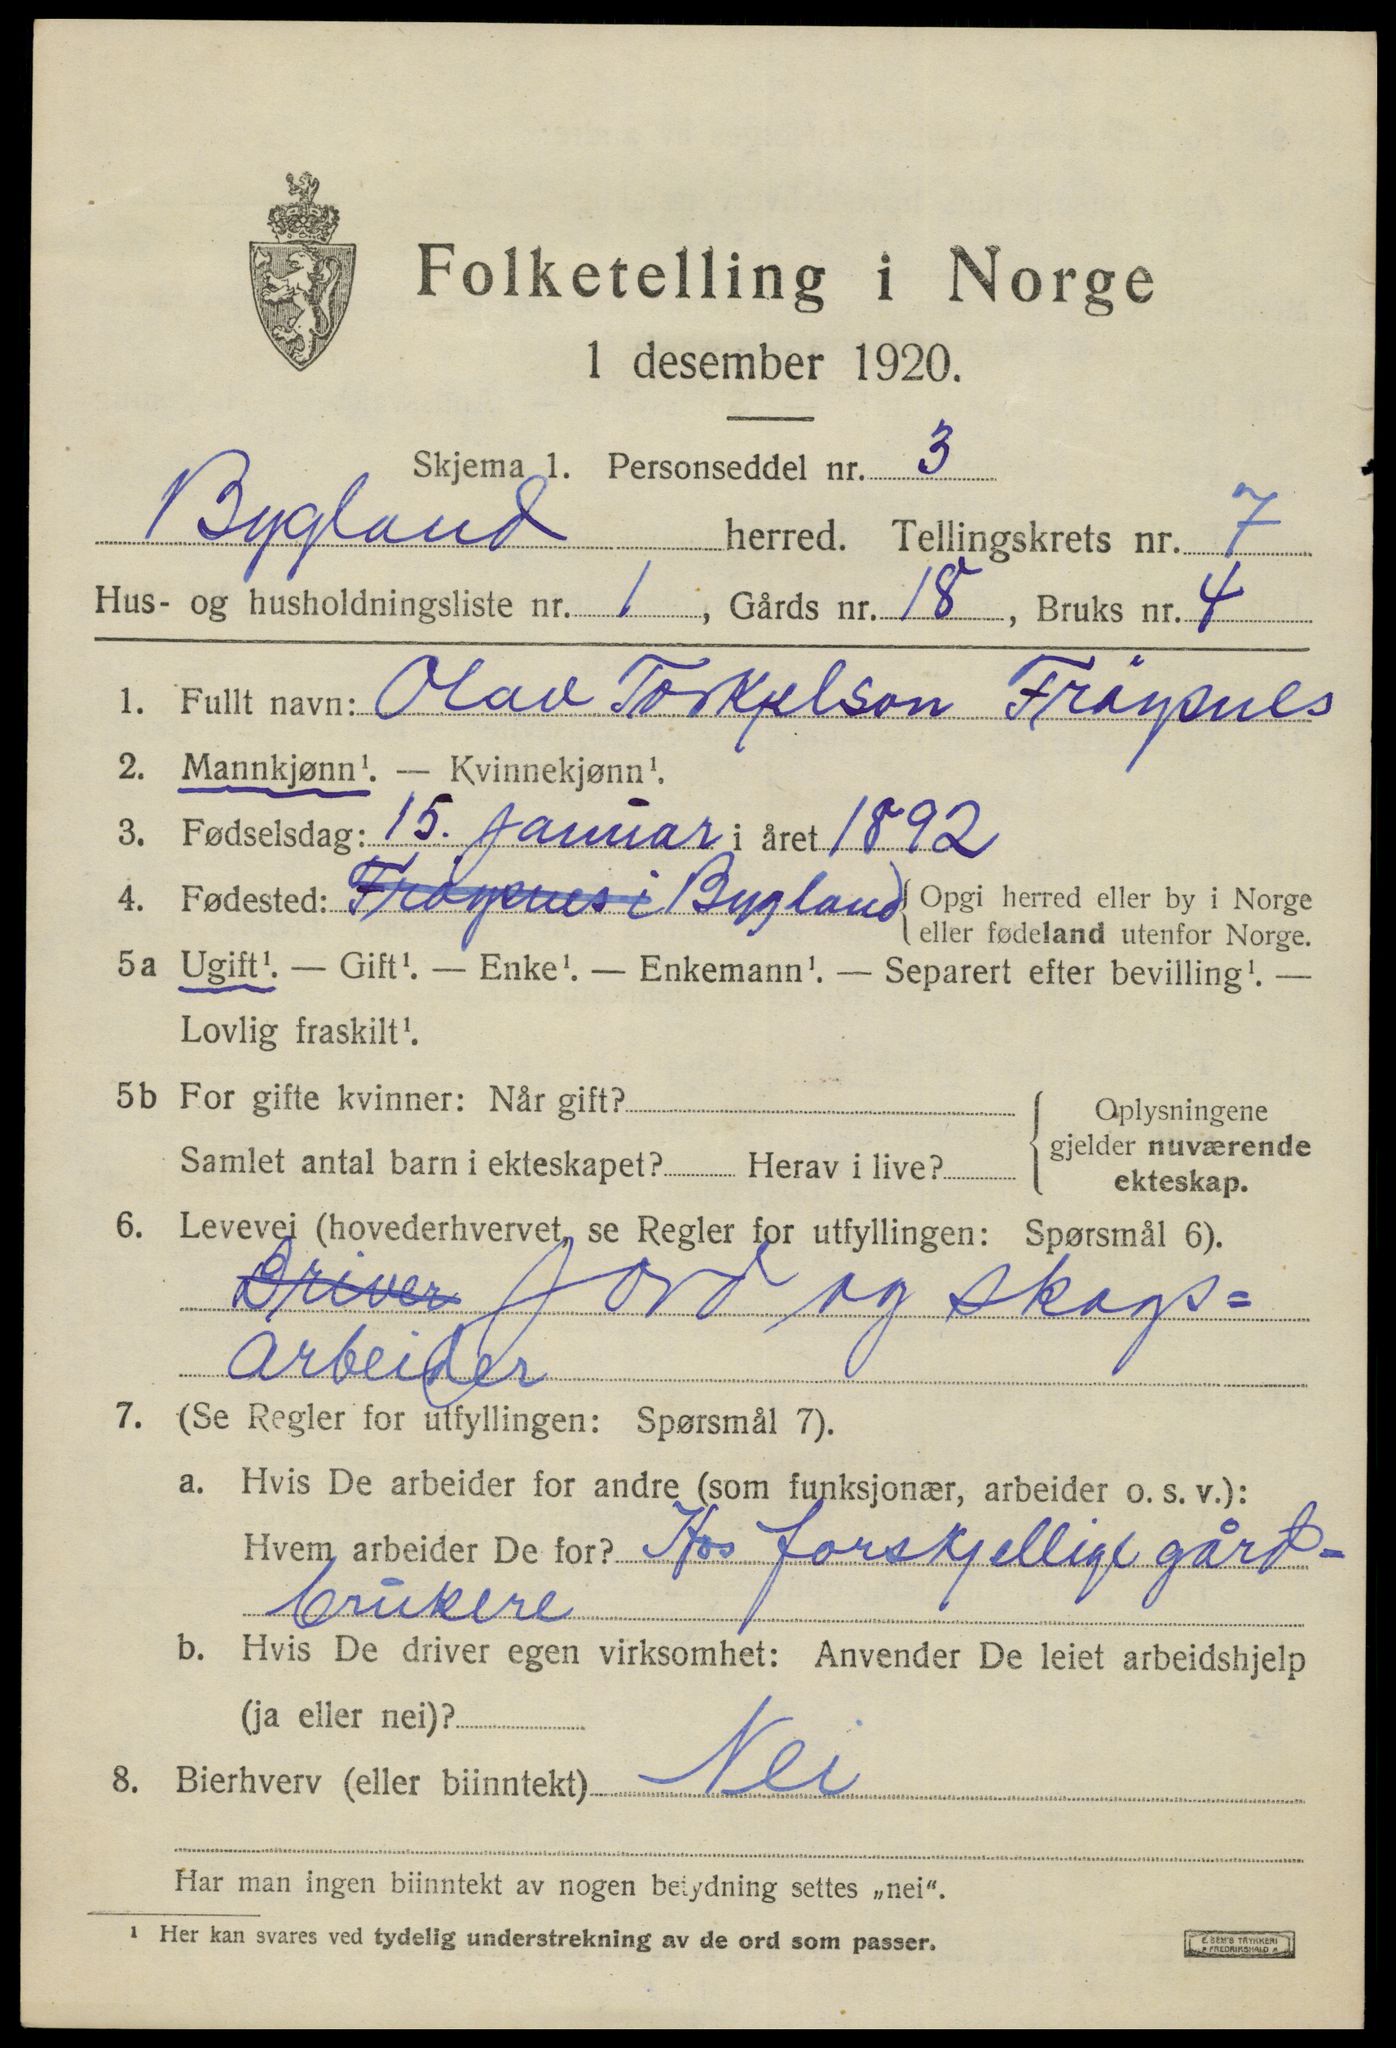 Folketelling i Norge
1 desember 1920.
Skjema 1. Personseddel nr. 3
Bygland herred. Tellingskrets nr. 7
Hus- og husholdningsliste nr. 1, Gårds nr. 18, Bruks nr. 4
1. Fullt navn: Olav Torkjelson Frøysnes
2. Mannkjønn¹. — Kvinnekjønn¹.
3. Fødselsdag: 15. januar i året 1892
4. Fødested: Frøysnes i Bygland { Opgi herred eller by i Norge
eller fødeland utenfor Norge.
5a Ugift¹. — Gift¹. — Enke¹. — Enkemann¹. — Separert efter bevilling¹. —
Lovlig fraskilt¹.
5b For gifte kvinner: Når gift?
Samlet antal barn i ekteskapet? Herav i live?
Oplysningene
gjelder nuværende
ekteskap.
6. Levevei (hovederhvervet, se Regler for utfyllingen: Spørsmål 6).
Driver jord og skogs=
arbeider
7. (Se Regler for utfyllingen: Spørsmål 7).
a. Hvis De arbeider for andre (som funksjonær, arbeider o. s. v.):
Hvem arbeider De for? Hos forskjellige gård-
brukere
b. Hvis De driver egen virksomhet: Anvender De leiet arbeidshjelp
(ja eller nei)?
8. Bierhverv (eller biinntekt) Nei
Har man ingen biinntekt av nogen betydning settes „nei“.
¹ Her kan svares ved tydelig understrekning av de ord som passer.
E. SEM'S TRYKKERI
FREDRIKSHALD